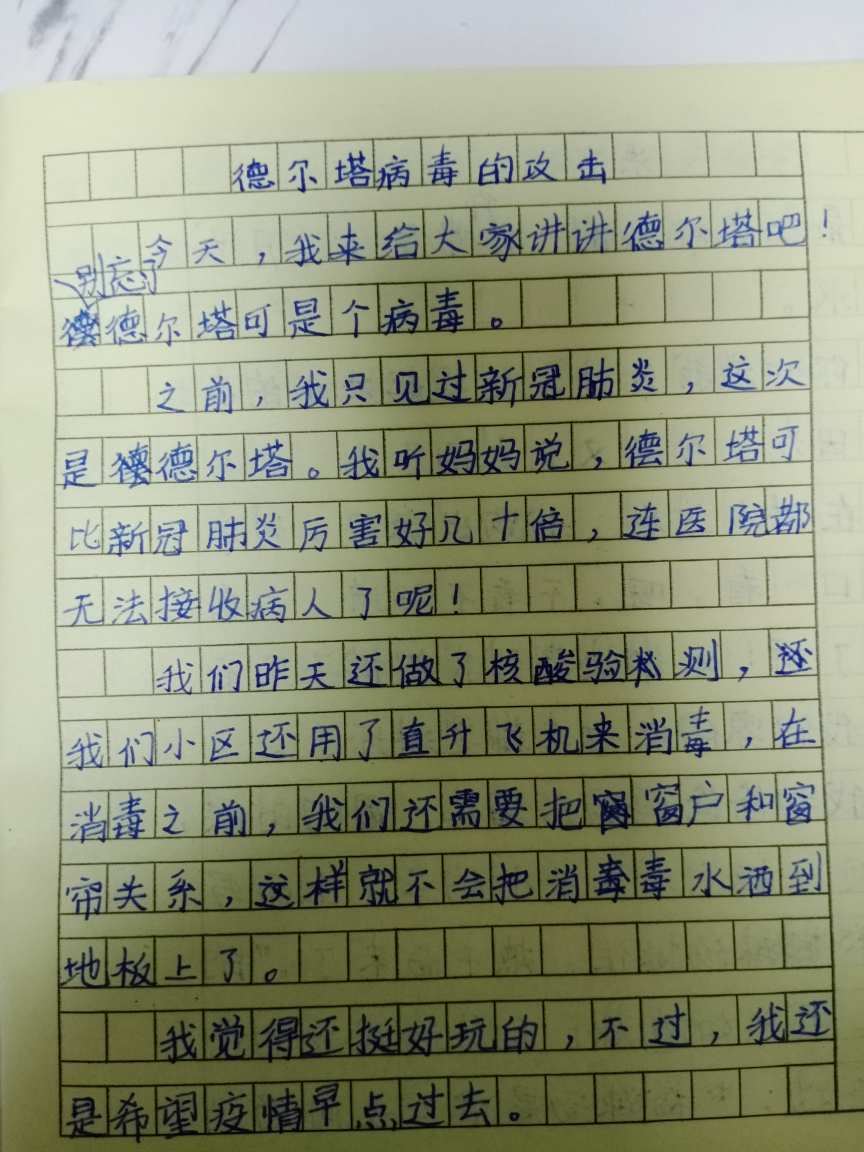 德尔塔病毒的攻击
今天，我来给大家讲讲德尔塔吧！
别忘了
德尔塔可是个病毒。
之前，我只见过新冠肺炎，这次
是德尔塔。我听妈妈说，德尔塔可
比新冠肺炎厉害好几十倍，连医院都
无法接收病人了呢！
我们昨天还做了核酸验测，
我们小区还用了直升飞机来消毒，在
消毒之前，我们还需要把窗户和窗
帘关系，这样就不会把消毒水洒到
地板上了。
我觉得还挺好玩的，不过，我还
是希望疫情早点过去。